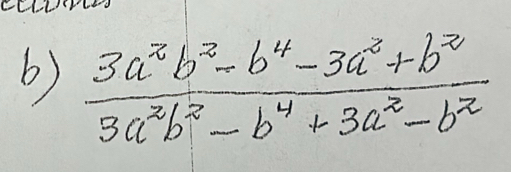 b) 3a²b² - b⁴ - 3a² + b²
3a²b² - b⁴ + 3a² - b²